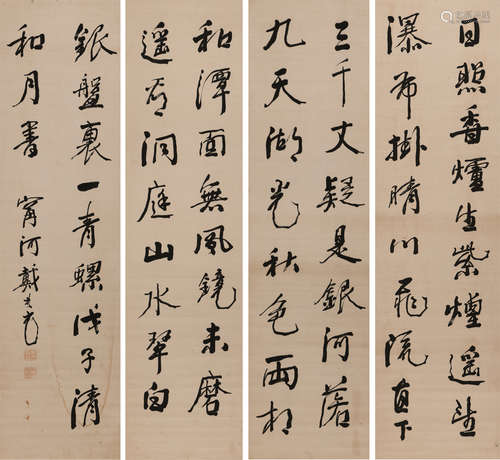 日照香爐生紫煙遙望
瀑布掛晴川飛流直下
三千丈疑是銀河落
九天湖光秋色兩相
和潭面無風鏡未磨
遙看洞庭山水翠白
銀盤裏一青螺戊子清
和月書
甯河戴